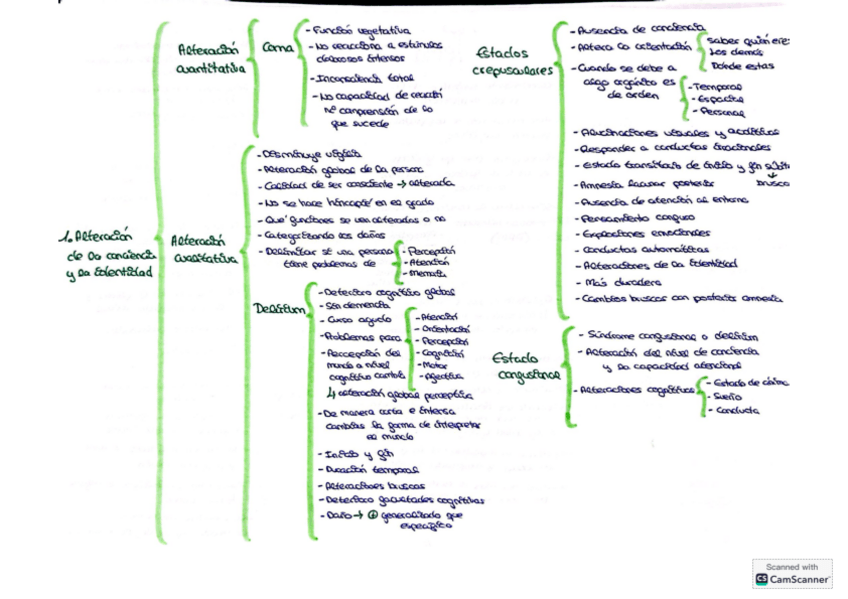 1. Alteración
de la conciencia
y la identidad
Alteración
cuantitativa
Coma
- Función vegetativa
- No reacciona a estímulos
dolorosos intensos
- Inconsciencia total
- No capacidad de reacción
ni comprensión de lo
que sucede
Alteración
cualitativa
- Disminuye vigilia
- Alteración global de la persona
- Calidad de ser consciente → alterada
- No se hace hincapié en el grado
- Qué funciones se ven alteradas o no
- Categorizando los daños
- Delimitar si una persona
tiene problemas de
- Percepción
- Atención
- Memoria
Delirium
- Deterioro cognitivo global
- Sin demencia
- Curso agudo
- Problemas para
- Atención
- Orientación
- Percepción
- Cognición
- Motor
- Afectiva
- Percepción del
mundo a nivel
cognitivo cambia
↳ alteración global perceptiva
- De manera corta e intensa
cambias la forma de interpretar
el mundo
- Inicio y fin
- Duración temporal
- Alteraciones bruscas
- Deterioro facultades cognitivas
- Daño → ⊕ generalizado que
específico
Estados
crepusculares
- Ausencia de conciencia
- Altera la orientación
saber quién eres
los demás
Dónde estás
- Cuando se debe a
algo orgánico es
de orden
- Temporal
- Espacial
- Personal
- Alucinaciones visuales y auditivas
- Responder a conductas irracionales
- Estado transitado de inicio y fin súbito
↓
brusco
- Amnesia lacunar posterior
- Ausencia de atención al entorno
- Pensamiento confuso
- Explosiones emocionales
- Conductas automáticas
- Alteraciones de la identidad
- Más duradero
- Cambios bruscos con posterior amnesia
Estado
confusional
- Síndrome confusional o delirium
- Alteración del nivel de conciencia
y la capacidad atencional
- Alteraciones cognitivas
- Estado de ánimo
- Sueño
- Conducta
Scanned with
CS CamScanner